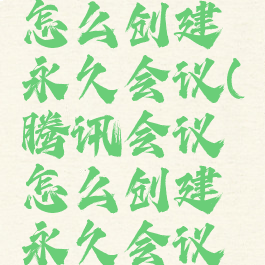 怎么创建
永久会议(
腾讯会议
怎么创建
永久会议